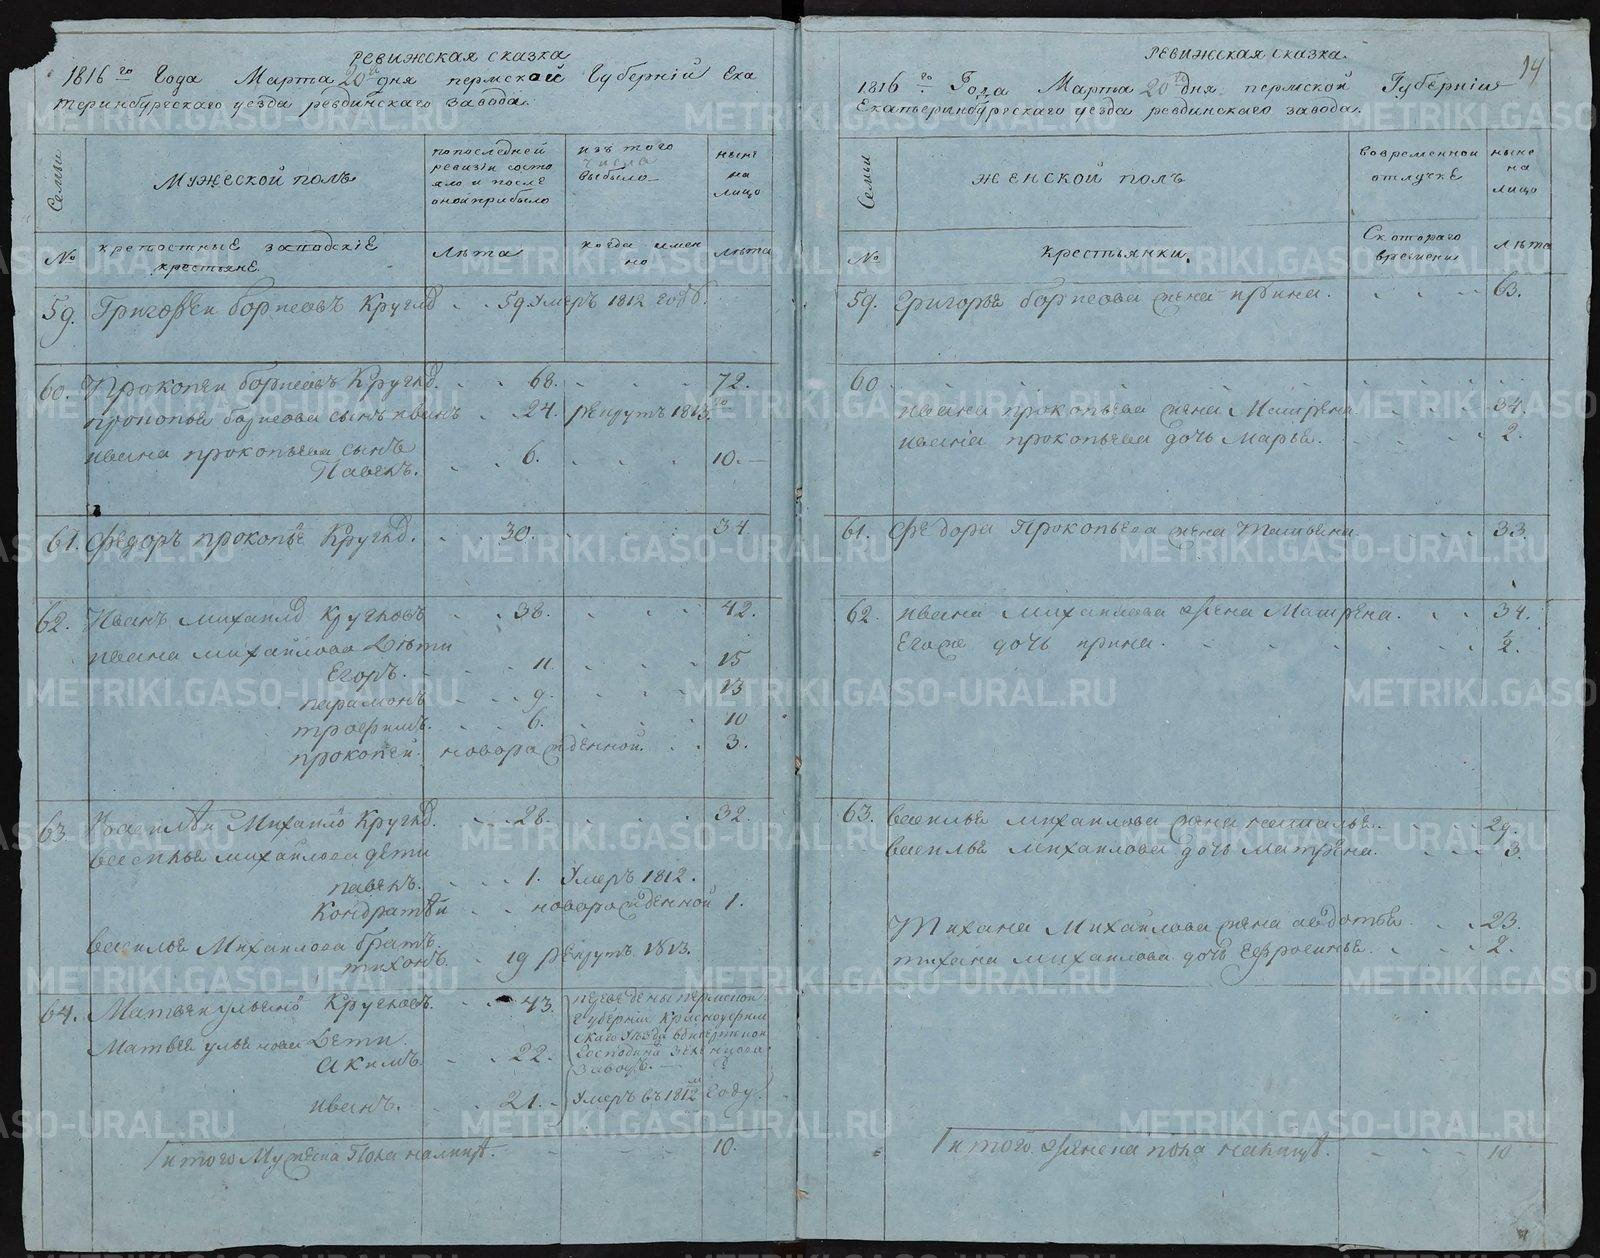 ревижская сказка
1816го Года Марта 20го дня пермской Губерніи Ека
теринбургскаго уезда ревдинскаго завода.
Семьи
Мужеской полъ
попоследней
ревизіи состо
яло и после
оной прибыло
изъ того
числа
выбыло
ныне
на
лицо
№
крепостные заводскіе
крестьяне.
Лѣта
когда имен
но
лѣта
59. Григорѣи борисовъ Кругло 59 Умеръ 1812 году.
60. Прокопеи борисовъ Кругло. 68. 72.
прокопья борисова сынъ иванъ 24. рекрутъ 1813го
ивана прокопьева сынъ
Павелъ. 6. 10.
61. федоръ прокопье Кругло. 30. 34.
62. Иванъ михаило Кругловъ 38. 42.
ивана михаилова Дѣти
Егоръ. 11. 15
парамонъ 9. 13
трофимъ. 6. 10
прокопей. новорожденной. 3.
63. Василѣи Михаило Кругло. 28. 32.
василья михаилова дети
павелъ. 1. Умеръ 1812.
Кондратѣи новорожденной 1.
василья Михаилова братъ
тихонъ. 19 рекрутъ 1813.
64. Матвеи ульяно Кругловъ. 43. переведены пермской
губерніи Красноуфим
скаго уѣзда
господина
заводъ.
Матвея ульянова Дети
Акимъ. 22.
иванъ. 21. Умеръ въ 1812м Году.
Итого Мужеска Пола налицо. 10.
ревижская сказка.
14
1816го Года Марта 20го дня пермской Губерніи
Екатеринбургскаго уезда ревдинскаго завода.
Семьи
женской полъ
вовременной
отлучке
ныне
на
лицо
№
Крестьянки.
Скотораго
времени
лѣта
59. Григорья борисова жена ирина. 63.
60
ивана прокопьева жена Матрена 34.
ивана прокопьева дочь Марья. 2.
61. федора Прокопьева жена Татьяна 33.
62. ивана михаилова жена Матрена. 34.
Егоже дочь ирина. 2.
63. василья михаилова жена наталья. 29.
василья михаилова дочь матрена. 3.
Тихана Михаилова жена авдотья 23.
тихана михаилова дочь Ефросинья 2.
Итого женска пола налицо. 10
METRIKI.GASO-URAL.RU